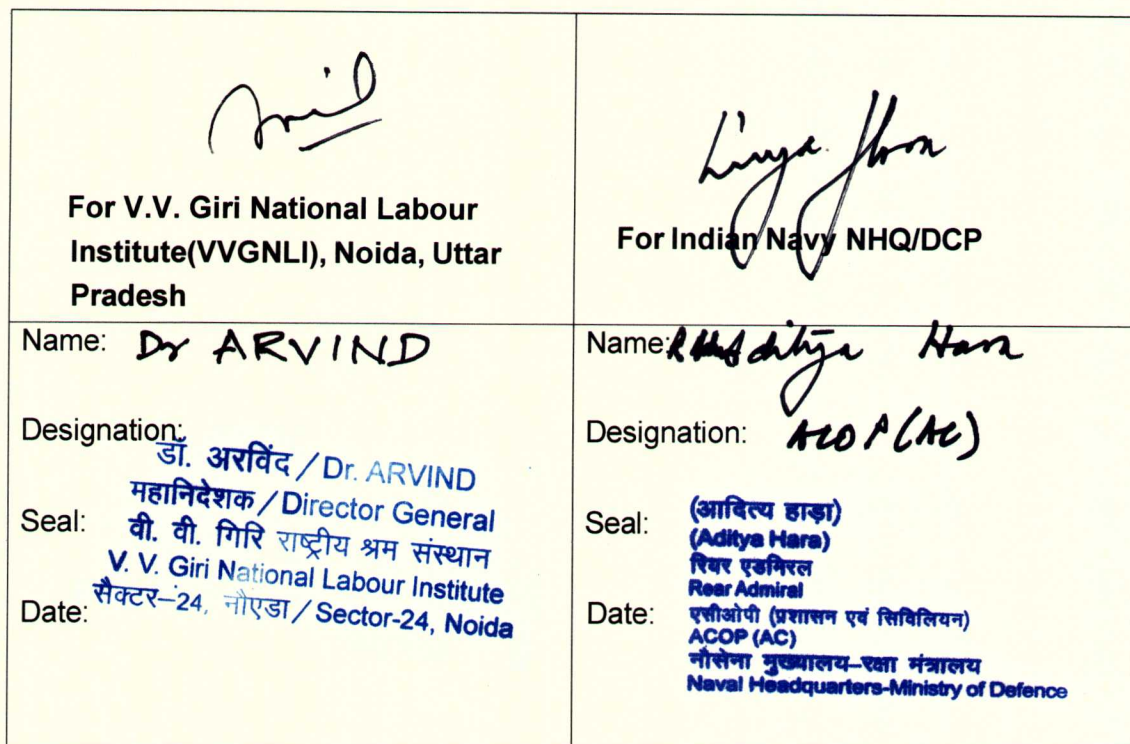 For V.V. Giri National Labour
Institute(VVGNLI), Noida, Uttar
Pradesh
For Indian Navy NHQ/DCP
Name: Dr ARVIND
Designation:
डॉ. अरविंद / Dr. ARVIND
महानिदेशक / Director General
Seal:
वी. वी. गिरि राष्ट्रीय श्रम संस्थान
V. V. Giri National Labour Institute
सैक्टर-24, नौएडा / Sector-24, Noida
Date:
Name: Aditya Hara
Designation: ACOP (AC)
Seal:
(आदित्य हाड़ा)
(Aditya Hara)
रियर एडमिरल
Rear Admiral
Date:
एसीओपी (प्रशासन एवं सिविलियन)
ACOP (AC)
नौसेना मुख्यालय-रक्षा मंत्रालय
Naval Headquarters-Ministry of Defence